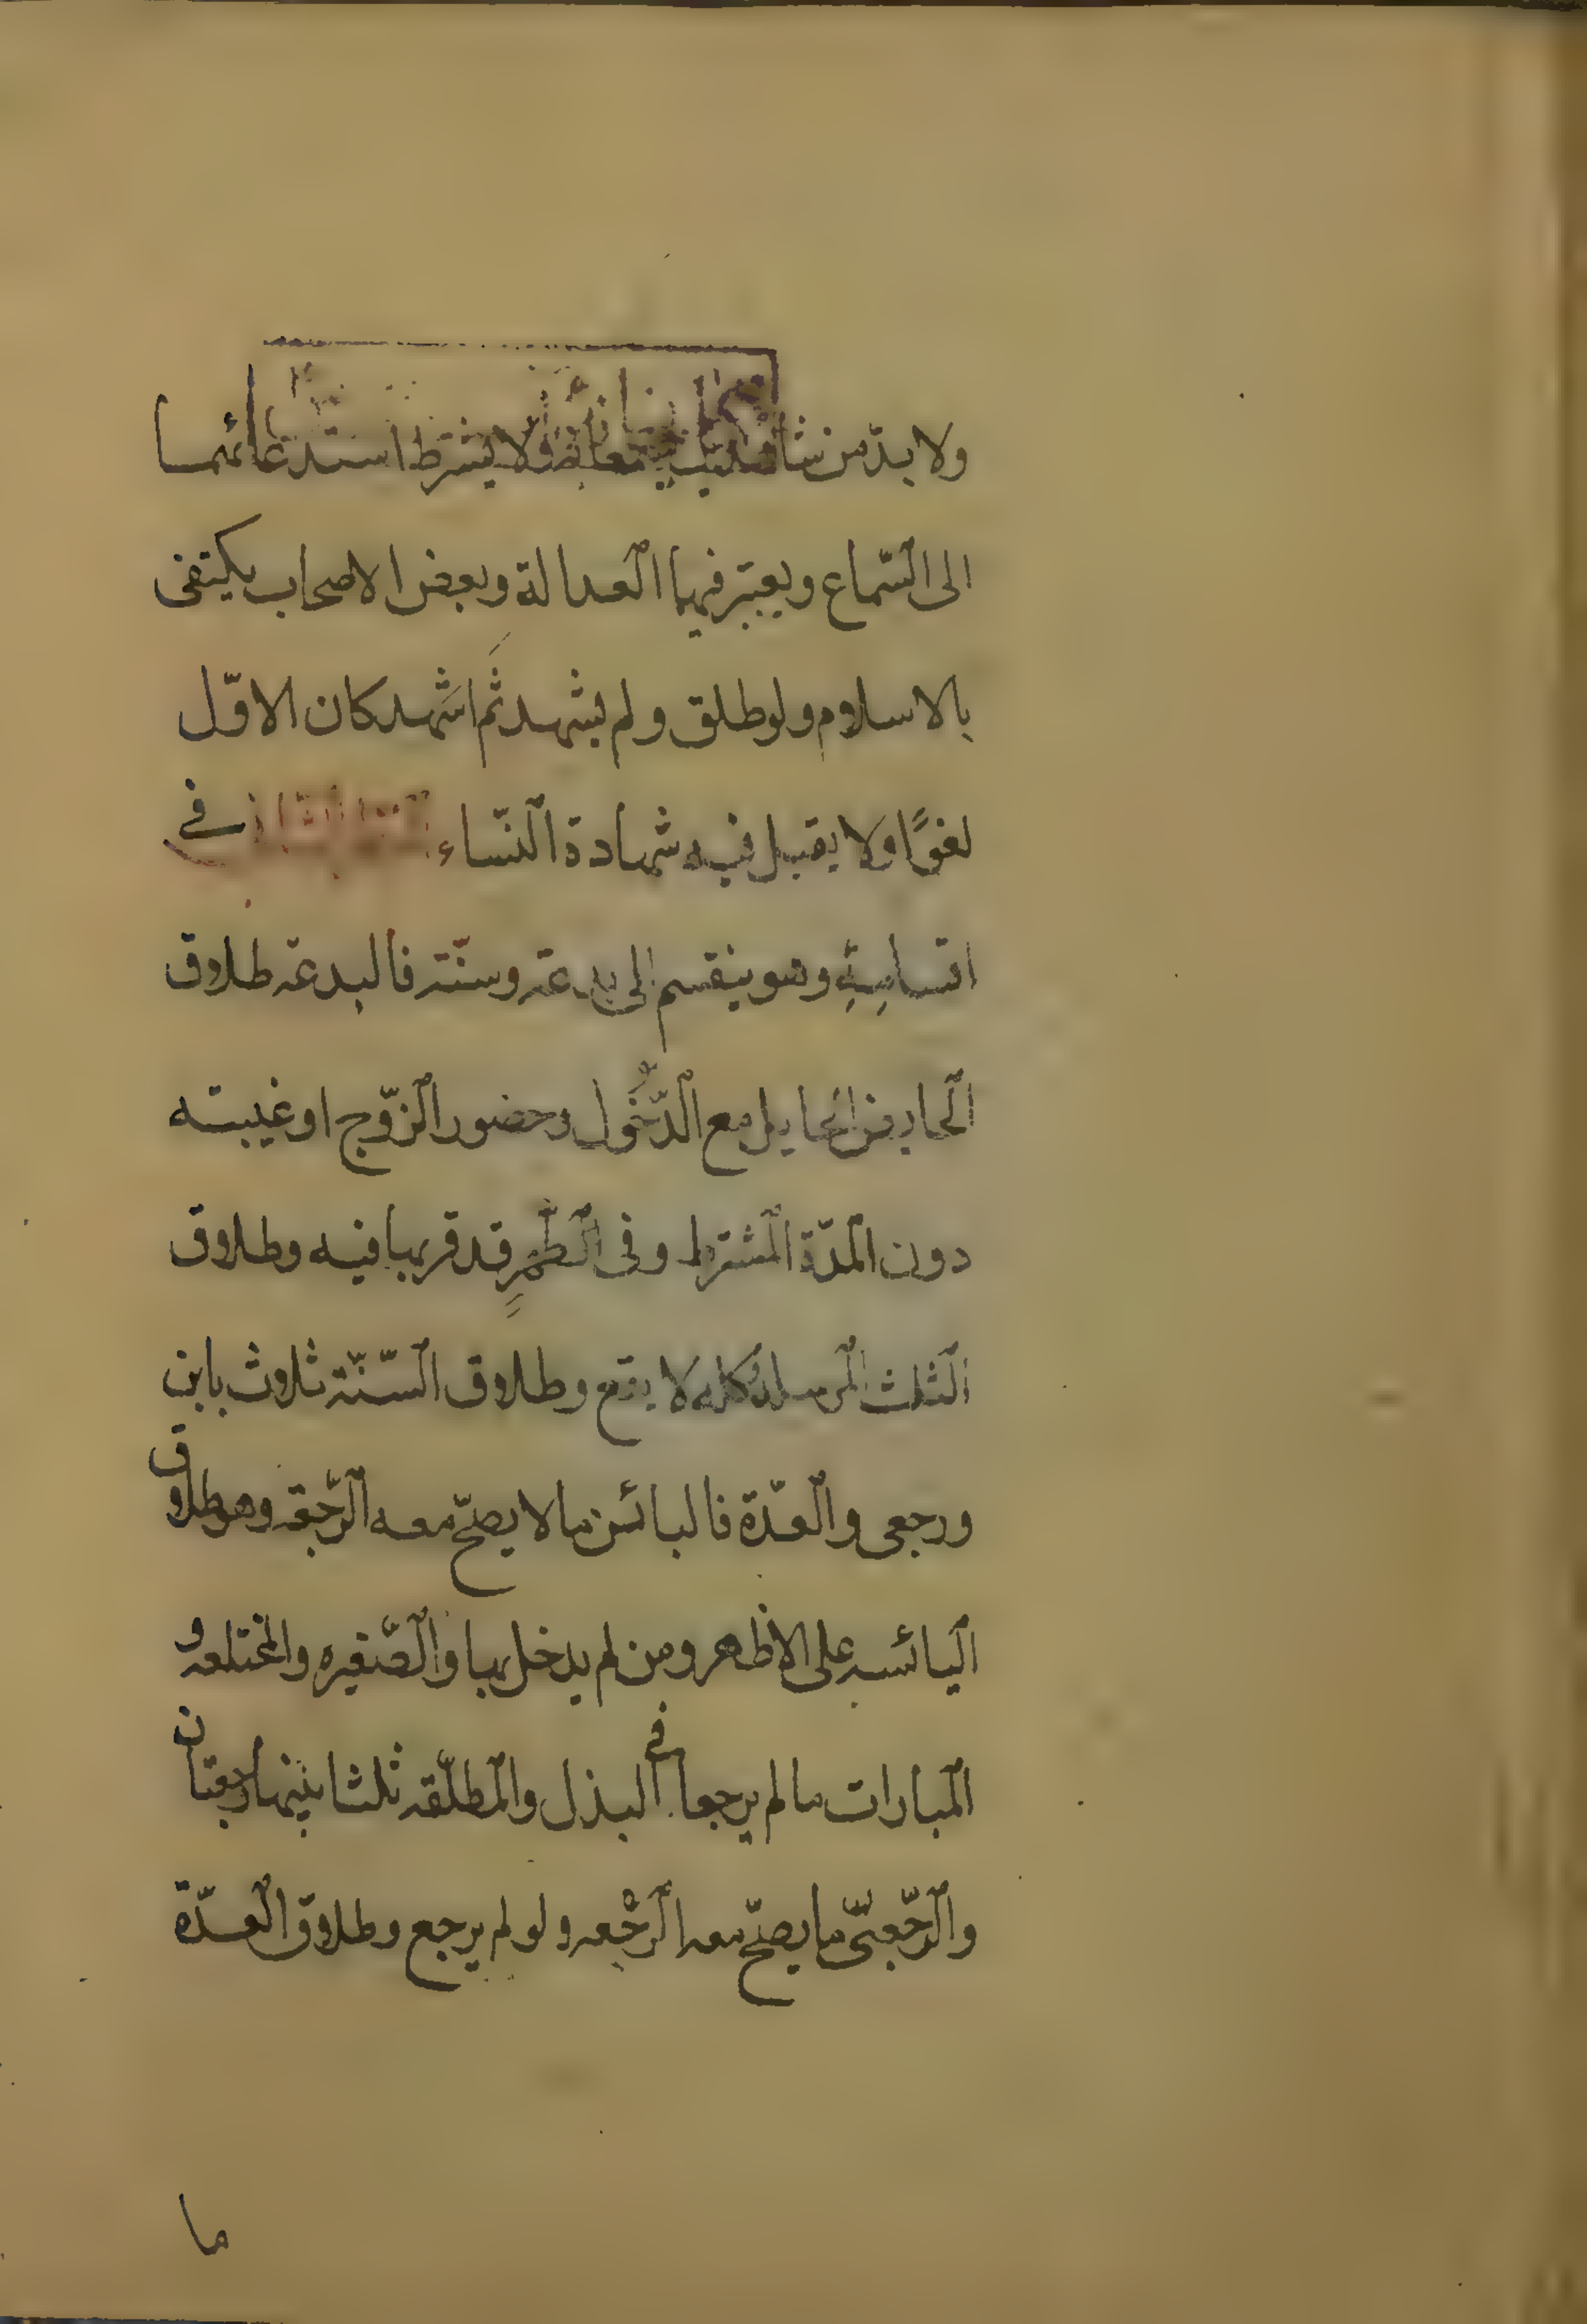 ولا بدّ من شاهدين يجتمعان ولا يشترط استدعائهما
الى السّماع ويعتبر فيهما العدالة وبعض الاصحاب يكتفى
بالاسلام ولو طلق ولم يشهد ثم اشهد كان الاوّل
لغوًا ولا يقبل فيه شهادة النّساء النظر الثانى فى
اقسامِهِ وهو ينقسم الى بدعة وسنّة فالبدعة طلاق
الحايض الحايل مع الدّخول وحضور الزّوج او غيبته
دون المدّة المشترط وفى الطّهرٍ قد قربها فيه وطلاق
الثلث المرسلة وكله لا يقع وطلاق السّنّة ثلاث باين
ورجعى والعدّة فالبائن ما لا يصحّ معه الرّجعة وهو طلاق
اليائسه على الاظهر ومن لم يدخل بها والصّغيره والمختلعه و
المبارات ما لم يرجعا فى البذل والمطلّقه ثلثا بينها رجعتان
والرّجعىّ ما يصحّ معه الرّجعه ولو لم يرجع وطلاق العدّة
ما